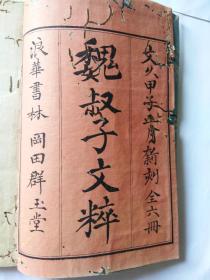 文久甲子正月新刻 全六冊
魏叔子文粹
浪華書林 岡田群玉堂